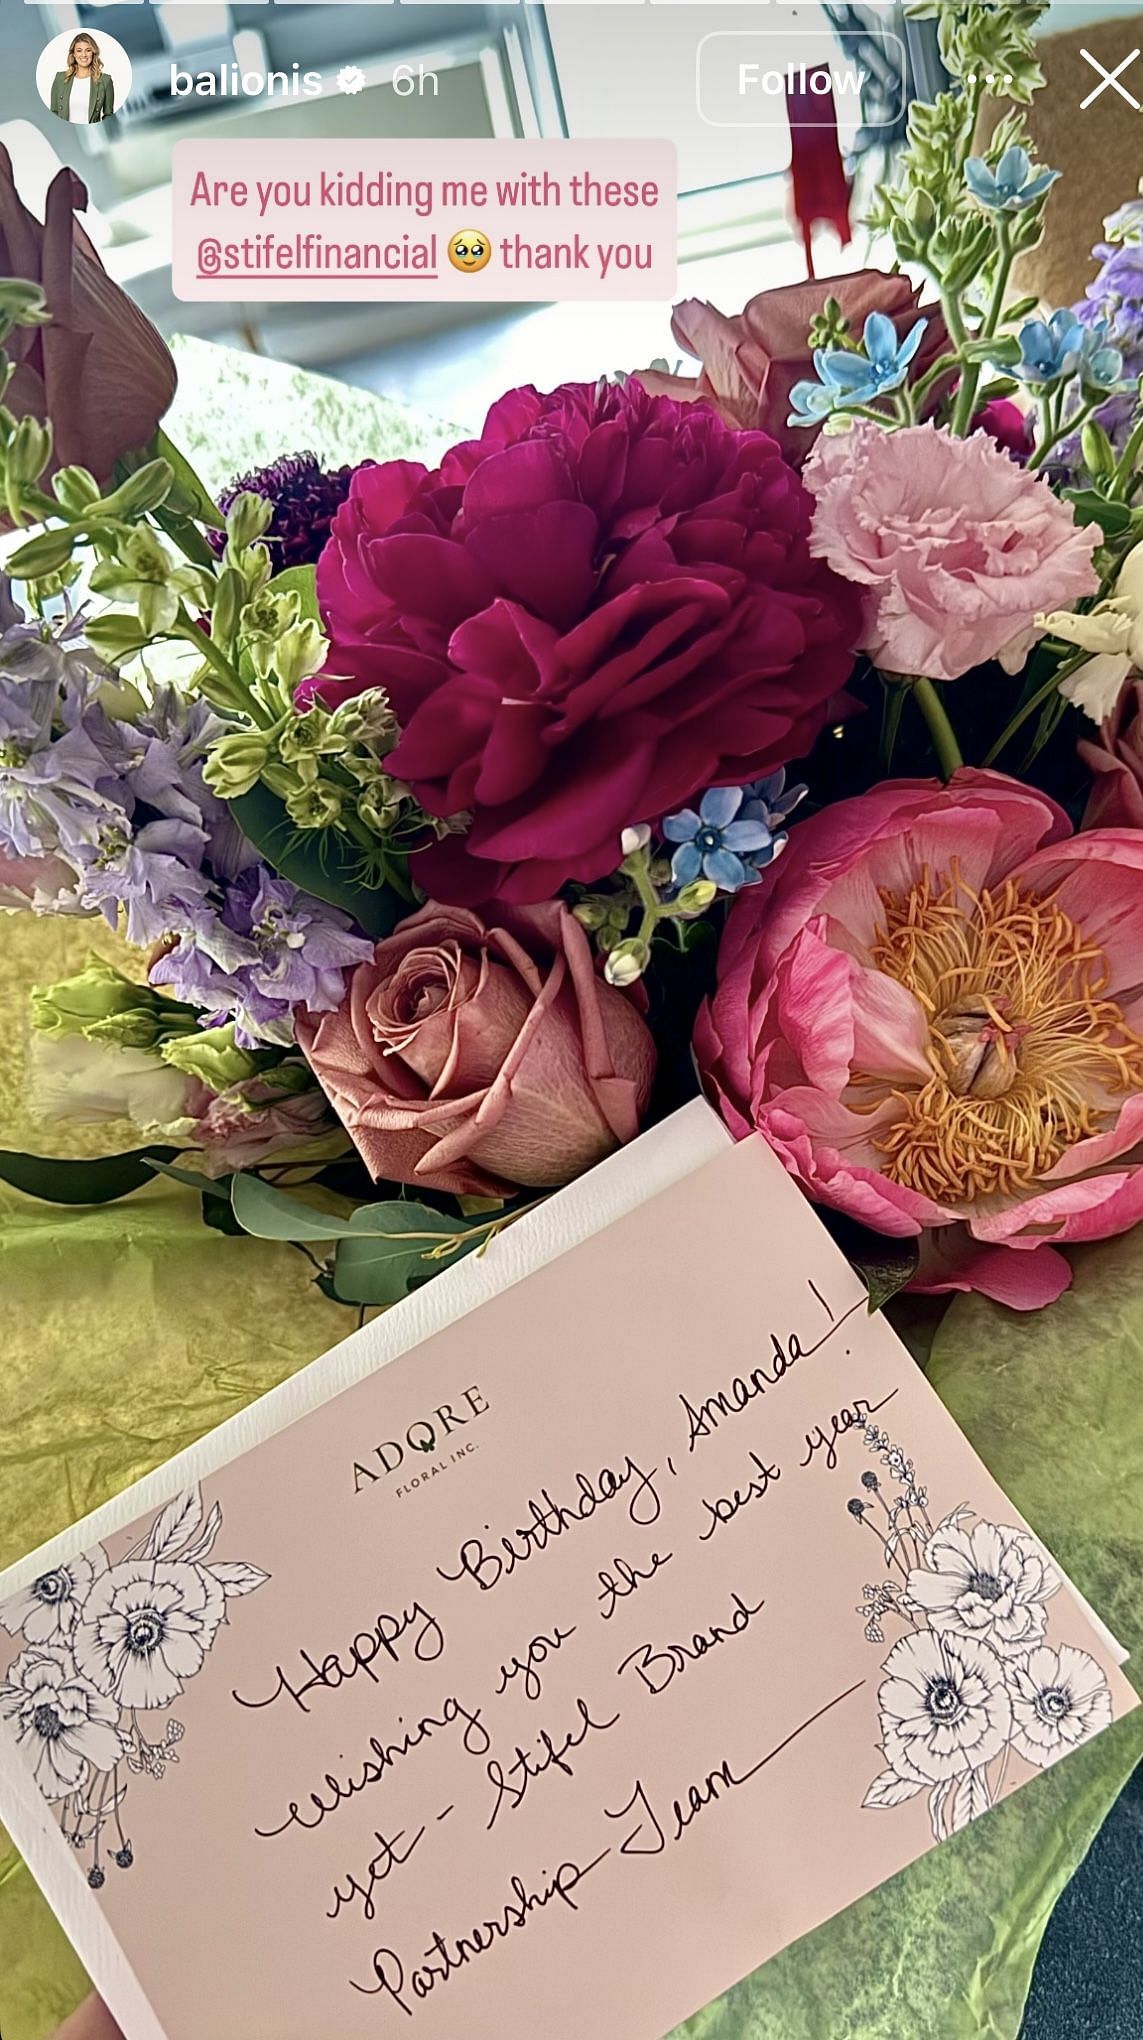 balionis 6h Follow
Are you kidding me with these
@stifelfinancial 🥹 thank you
ADORE
FLORAL INC.
Happy Birthday, Amanda!
Wishing you the best year
yet - Stifel Brand
Partnership Team